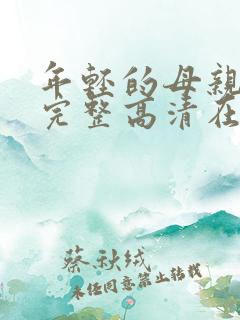 年轻的母亲
完整高清在
蔡秋绒
未经同意禁止转载